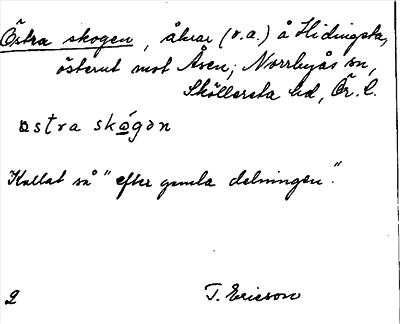 Östra skogen, åkrar (o.a.) å Hidingsta,
österut mot Åsen; Norrbyås sn,
Sköllersta hd, Ör. l.
östra skógon
Kallat så "efter gamla delningen".
2 T. Ericson